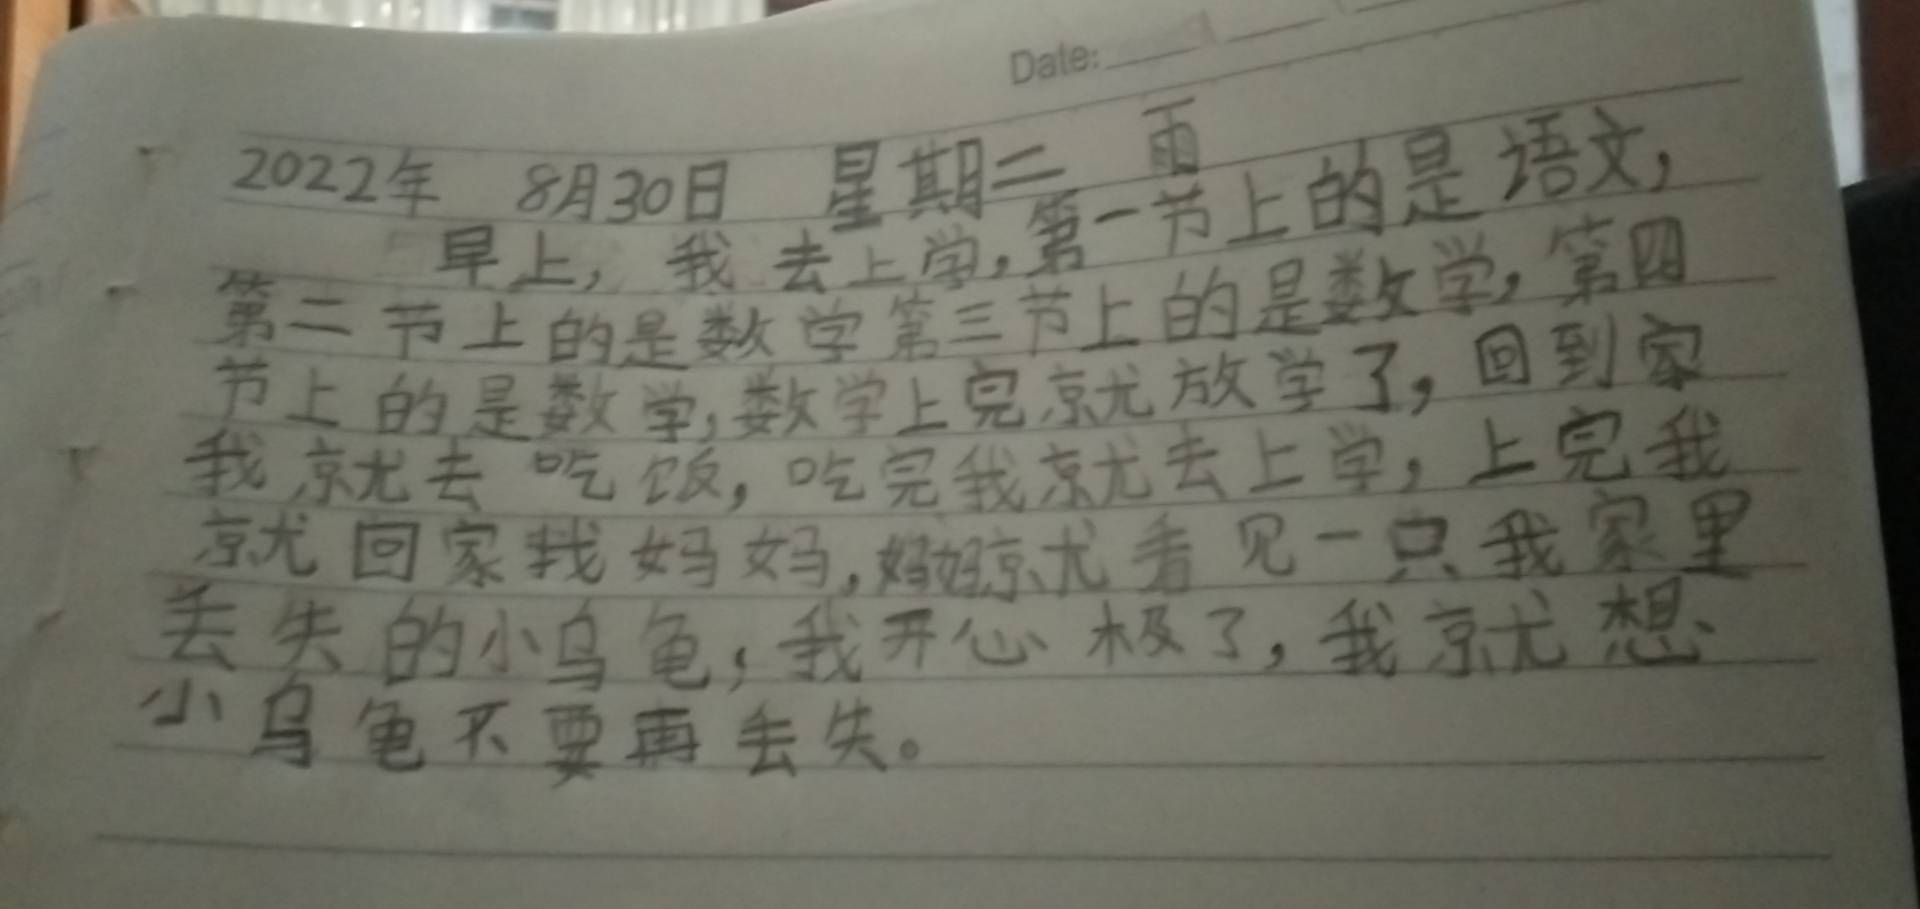 Date:
2022年 8月30日 星期二 雨
早上，我去上学，第一节上的是语文，
第二节上的是数学第三节上的是数学，第四
节上的是数学，数学上完就放学了，回到家
我就去吃饭，吃完我就去上学，上完我
就回家找妈妈，妈妈就看见一只我家里
丢失的小乌龟，我开心极了，我就想
小乌龟不要再丢失。